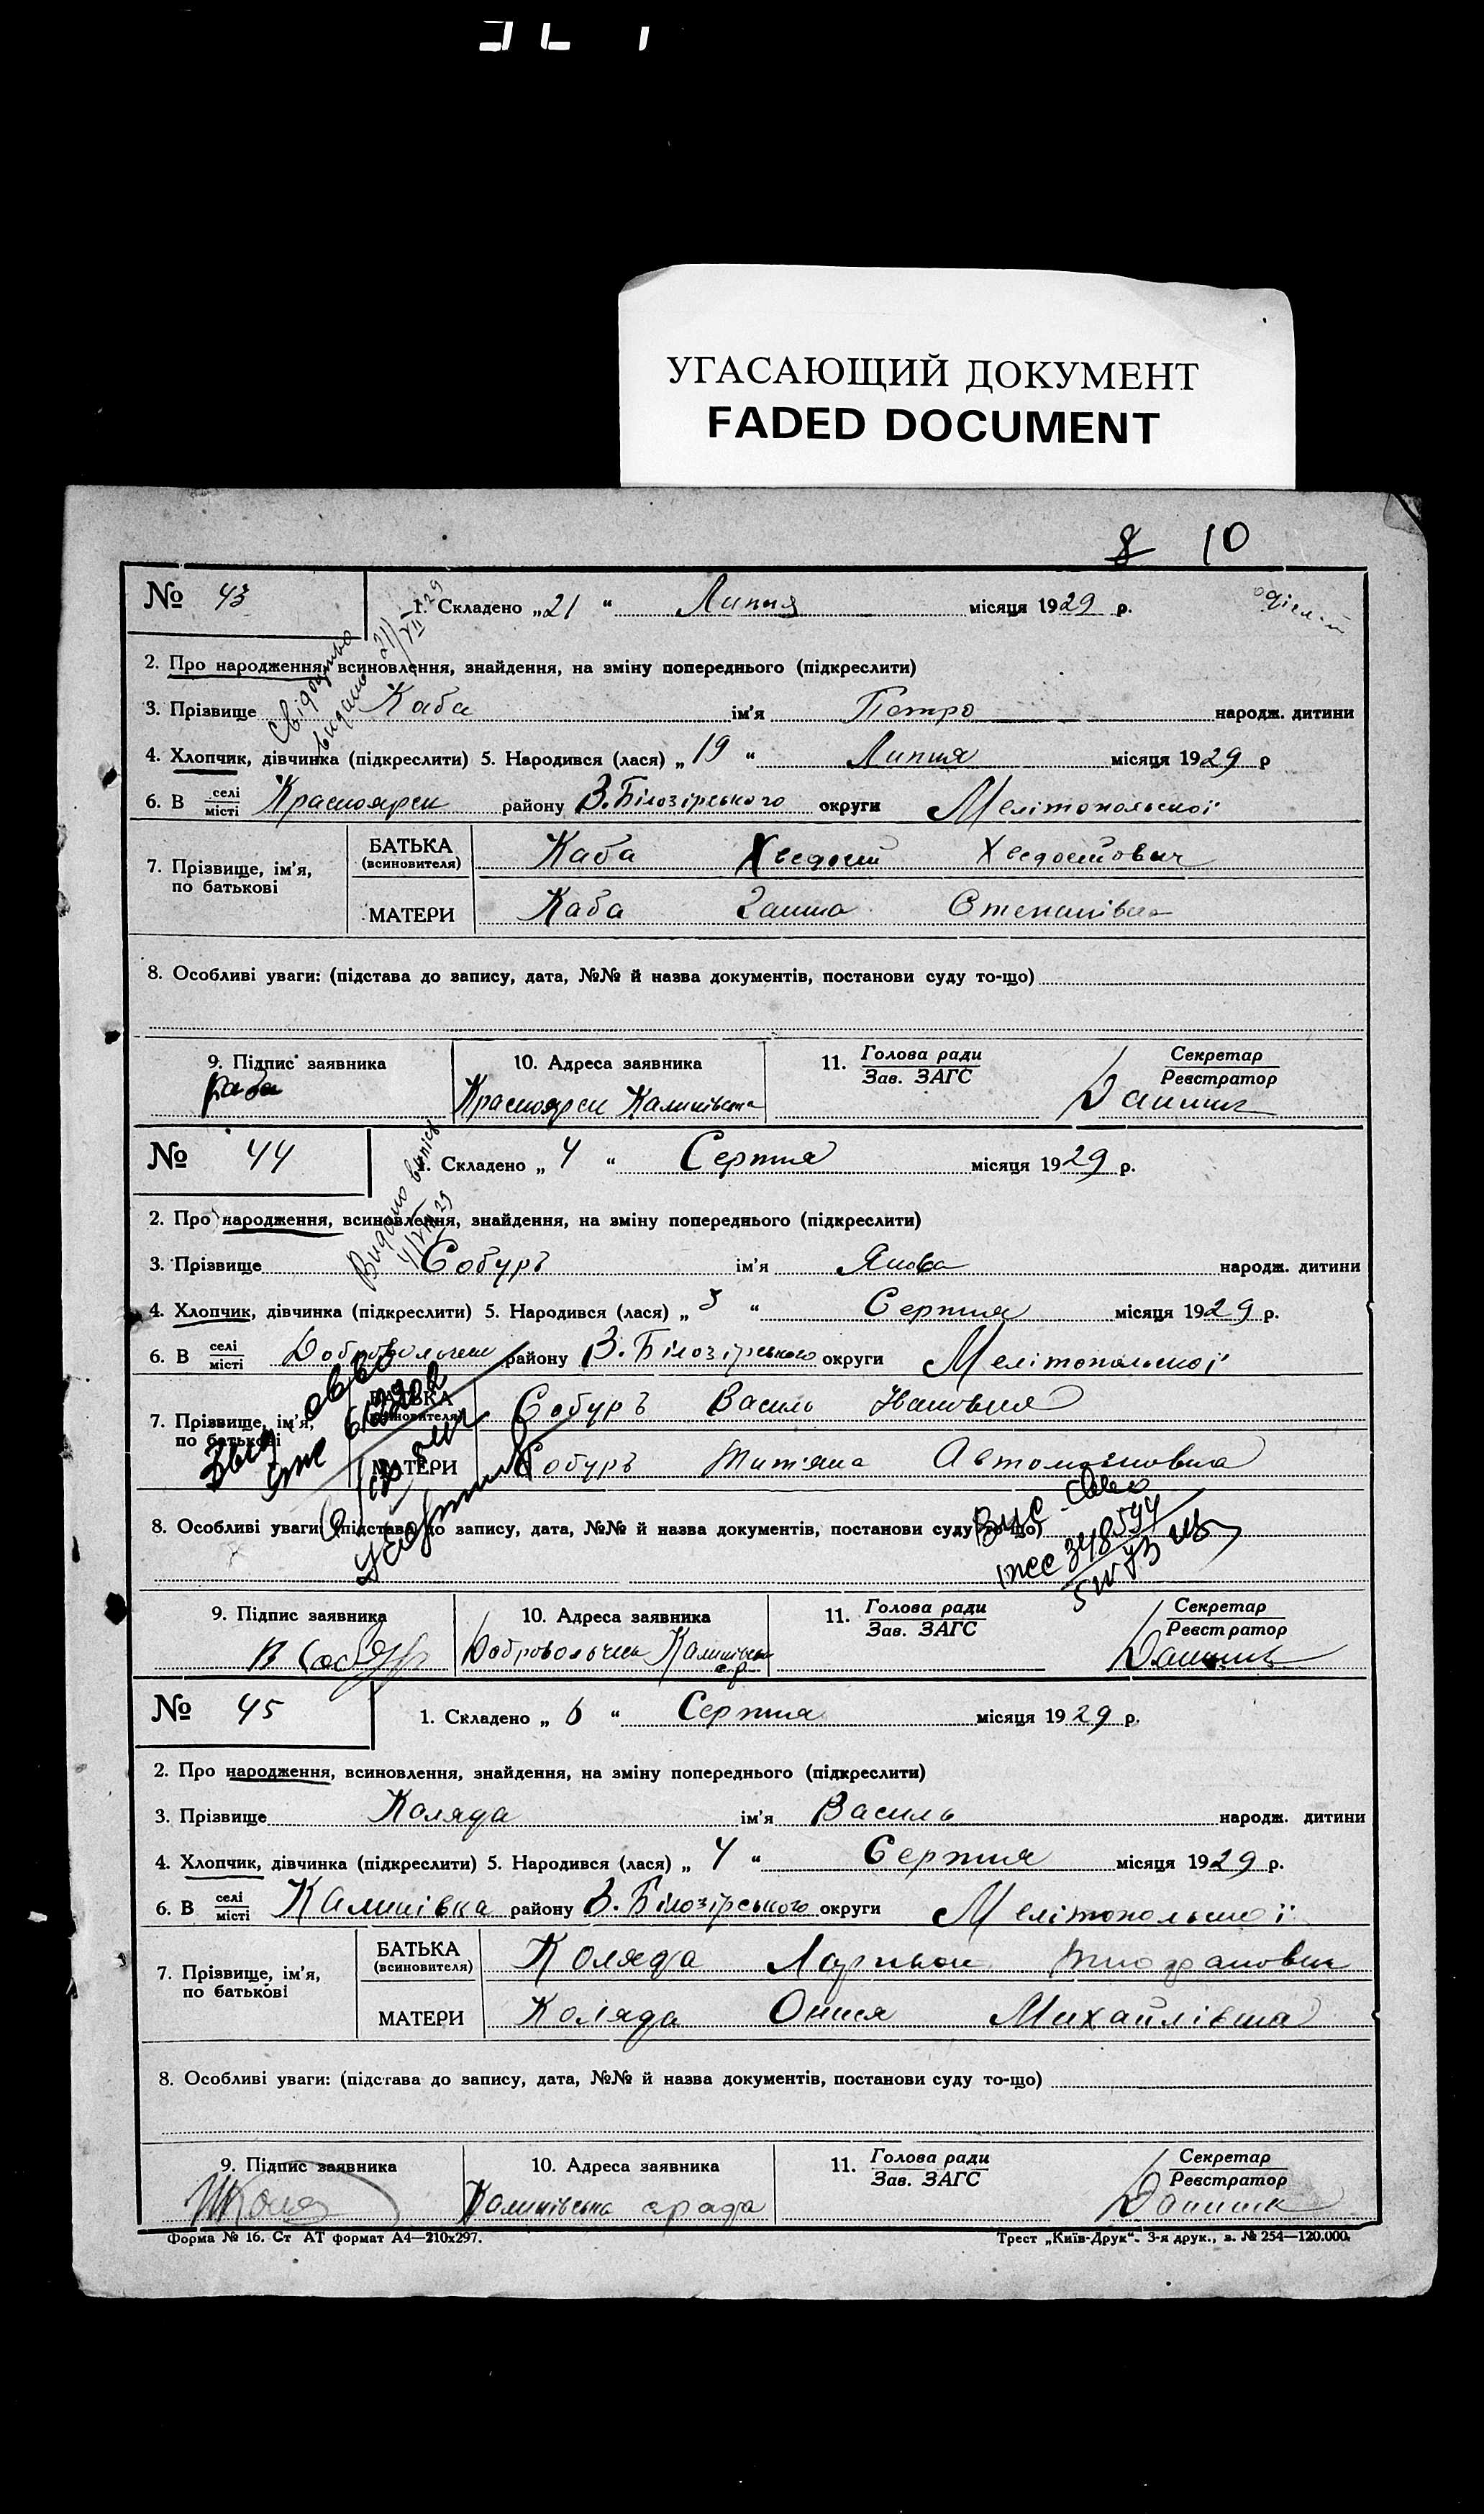 УГАСАЮЩИЙ ДОКУМЕНТ
FADED DOCUMENT
8 10
№ 43 1. Складено „21 “ Липня місяця 1929 р.
Свідоцтво видано 21/VII 29
2. Про народження, всиновлення, знайдення, на зміну попереднього (підкреслити)
3. Прізвище Каба ім'я Петро народж. дитини
4. Хлопчик, дівчинка (підкреслити) 5. Народився (лася) „ 19 “ Липня місяця 1929 р
6. В селі місті Красноярськ району В.Білозірського округи Мелітопольської
7. Прізвище, ім'я, по батькові
БАТЬКА (всиновителя) Каба Хведосій Хведосійович
МАТЕРИ Каба Ганна Степанівна
8. Особливі уваги: (підстава до запису, дата, №№ й назва документів, постанови суду то-що)
9. Підпис заявника 10. Адреса заявника 11. Голова ради Зав. ЗАГС Секретар Реєстратор
Каба Красноярськ Калинівська
№ 44 1. Складено „ 4 “ Серпня місяця 1929 р.
Видано випис 4/VIII 29
2. Про народження, всиновлення, знайдення, на зміну попереднього (підкреслити)
3. Прізвище Собуръ ім'я Яков народж. дитини
4. Хлопчик, дівчинка (підкреслити) 5. Народився (лася) „ 3 “ Серпня місяця 1929 р.
6. В селі місті району В.Білозірського округи Мелітопольської
7. Прізвище, ім'я, по батькові
БАТЬКА (всиновителя) Собуръ Василь Іванович
МАТЕРИ Собуръ Титяна Автомоновна
8. Особливі уваги: (підстава до запису, дата, №№ й назва документів, постанови суду то-що)
348594
9. Підпис заявника 10. Адреса заявника 11. Голова ради Зав. ЗАГС Секретар Реєстратор
В Собур
№ 45 1. Складено „ 6 “ Серпня місяця 1929 р.
2. Про народження, всиновлення, знайдення, на зміну попереднього (підкреслити)
3. Прізвище Коляда ім'я Василь народж. дитини
4. Хлопчик, дівчинка (підкреслити) 5. Народився (лася) „ 4 “ Серпня місяця 1929 р.
6. В селі місті Калинівка району В.Білозірського округи Мелітопольської
7. Прізвище, ім'я, по батькові
БАТЬКА (всиновителя) Коляда Ларивон
МАТЕРИ Коляда Онися Михайлівна
8. Особливі уваги: (підстава до запису, дата, №№ й назва документів, постанови суду то-що)
9. Підпис заявника 10. Адреса заявника 11. Голова ради Зав. ЗАГС Секретар Реєстратор
Калинівська с рада
Форма № 16. Ст АТ формат А4—210х297. Трест „Київ-Друк“. 3-я друк., з. № 254—120.000.